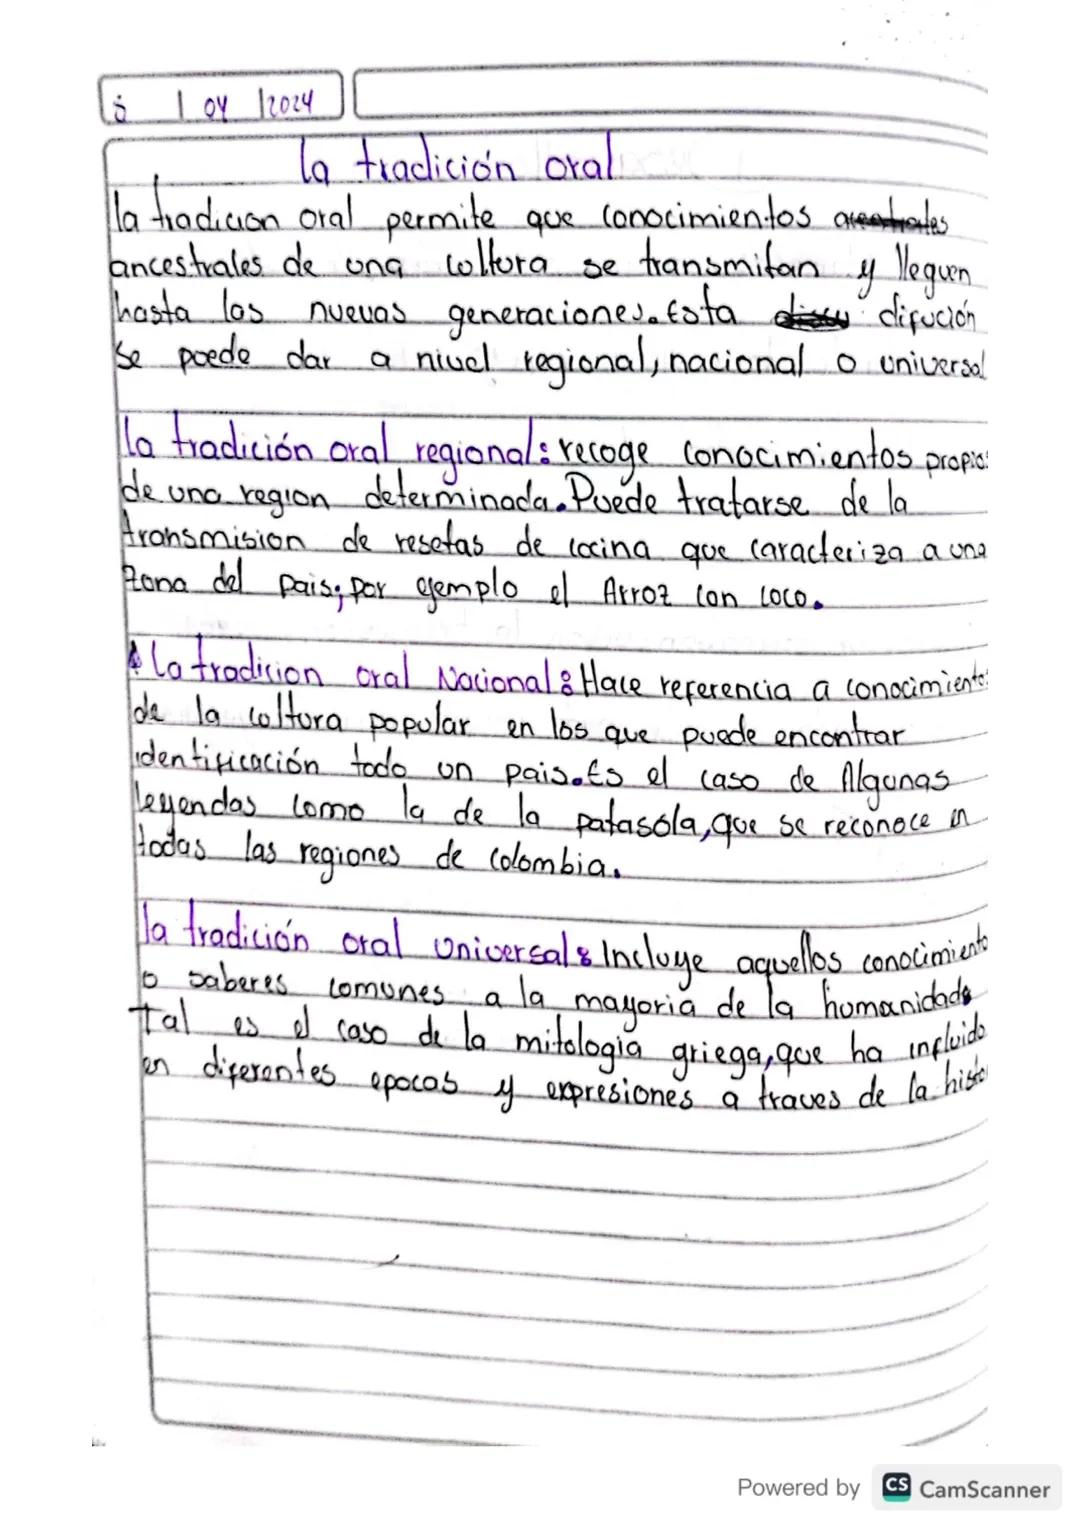 04 2024
la tradición oral
la tradicion oral permite que conocimientos
ancestrales de una coltura se transmitan y lleguen
hasta las nuevas generaciones. Esta difución
se poede dar a nivel regional, nacional o universal
la tradición oral regional: recoge conocimientos propios
de una region determinada. Puede tratarse de la
transmision de resetas de cocina que caracteriza a una
zona del pais; por ejemplo el Arroz con coco.
La tradicion oral Nacional: Hace referencia a conocimientos
de la coltura popular en los que puede encontrar
identificación todo un pais. Es el caso de Algunas
leyendas como la de la patasola, que se reconoce en
todas las regiones de colombia.
la tradición oral universal: Incluye aquellos conocimiento
o saberes comunes a la mayoria de la humanidad.
Tal es el caso de la mitologia griega, que ha influido
en diferentes epocas y expresiones a traves de la histo
Powered by CS CamScanner